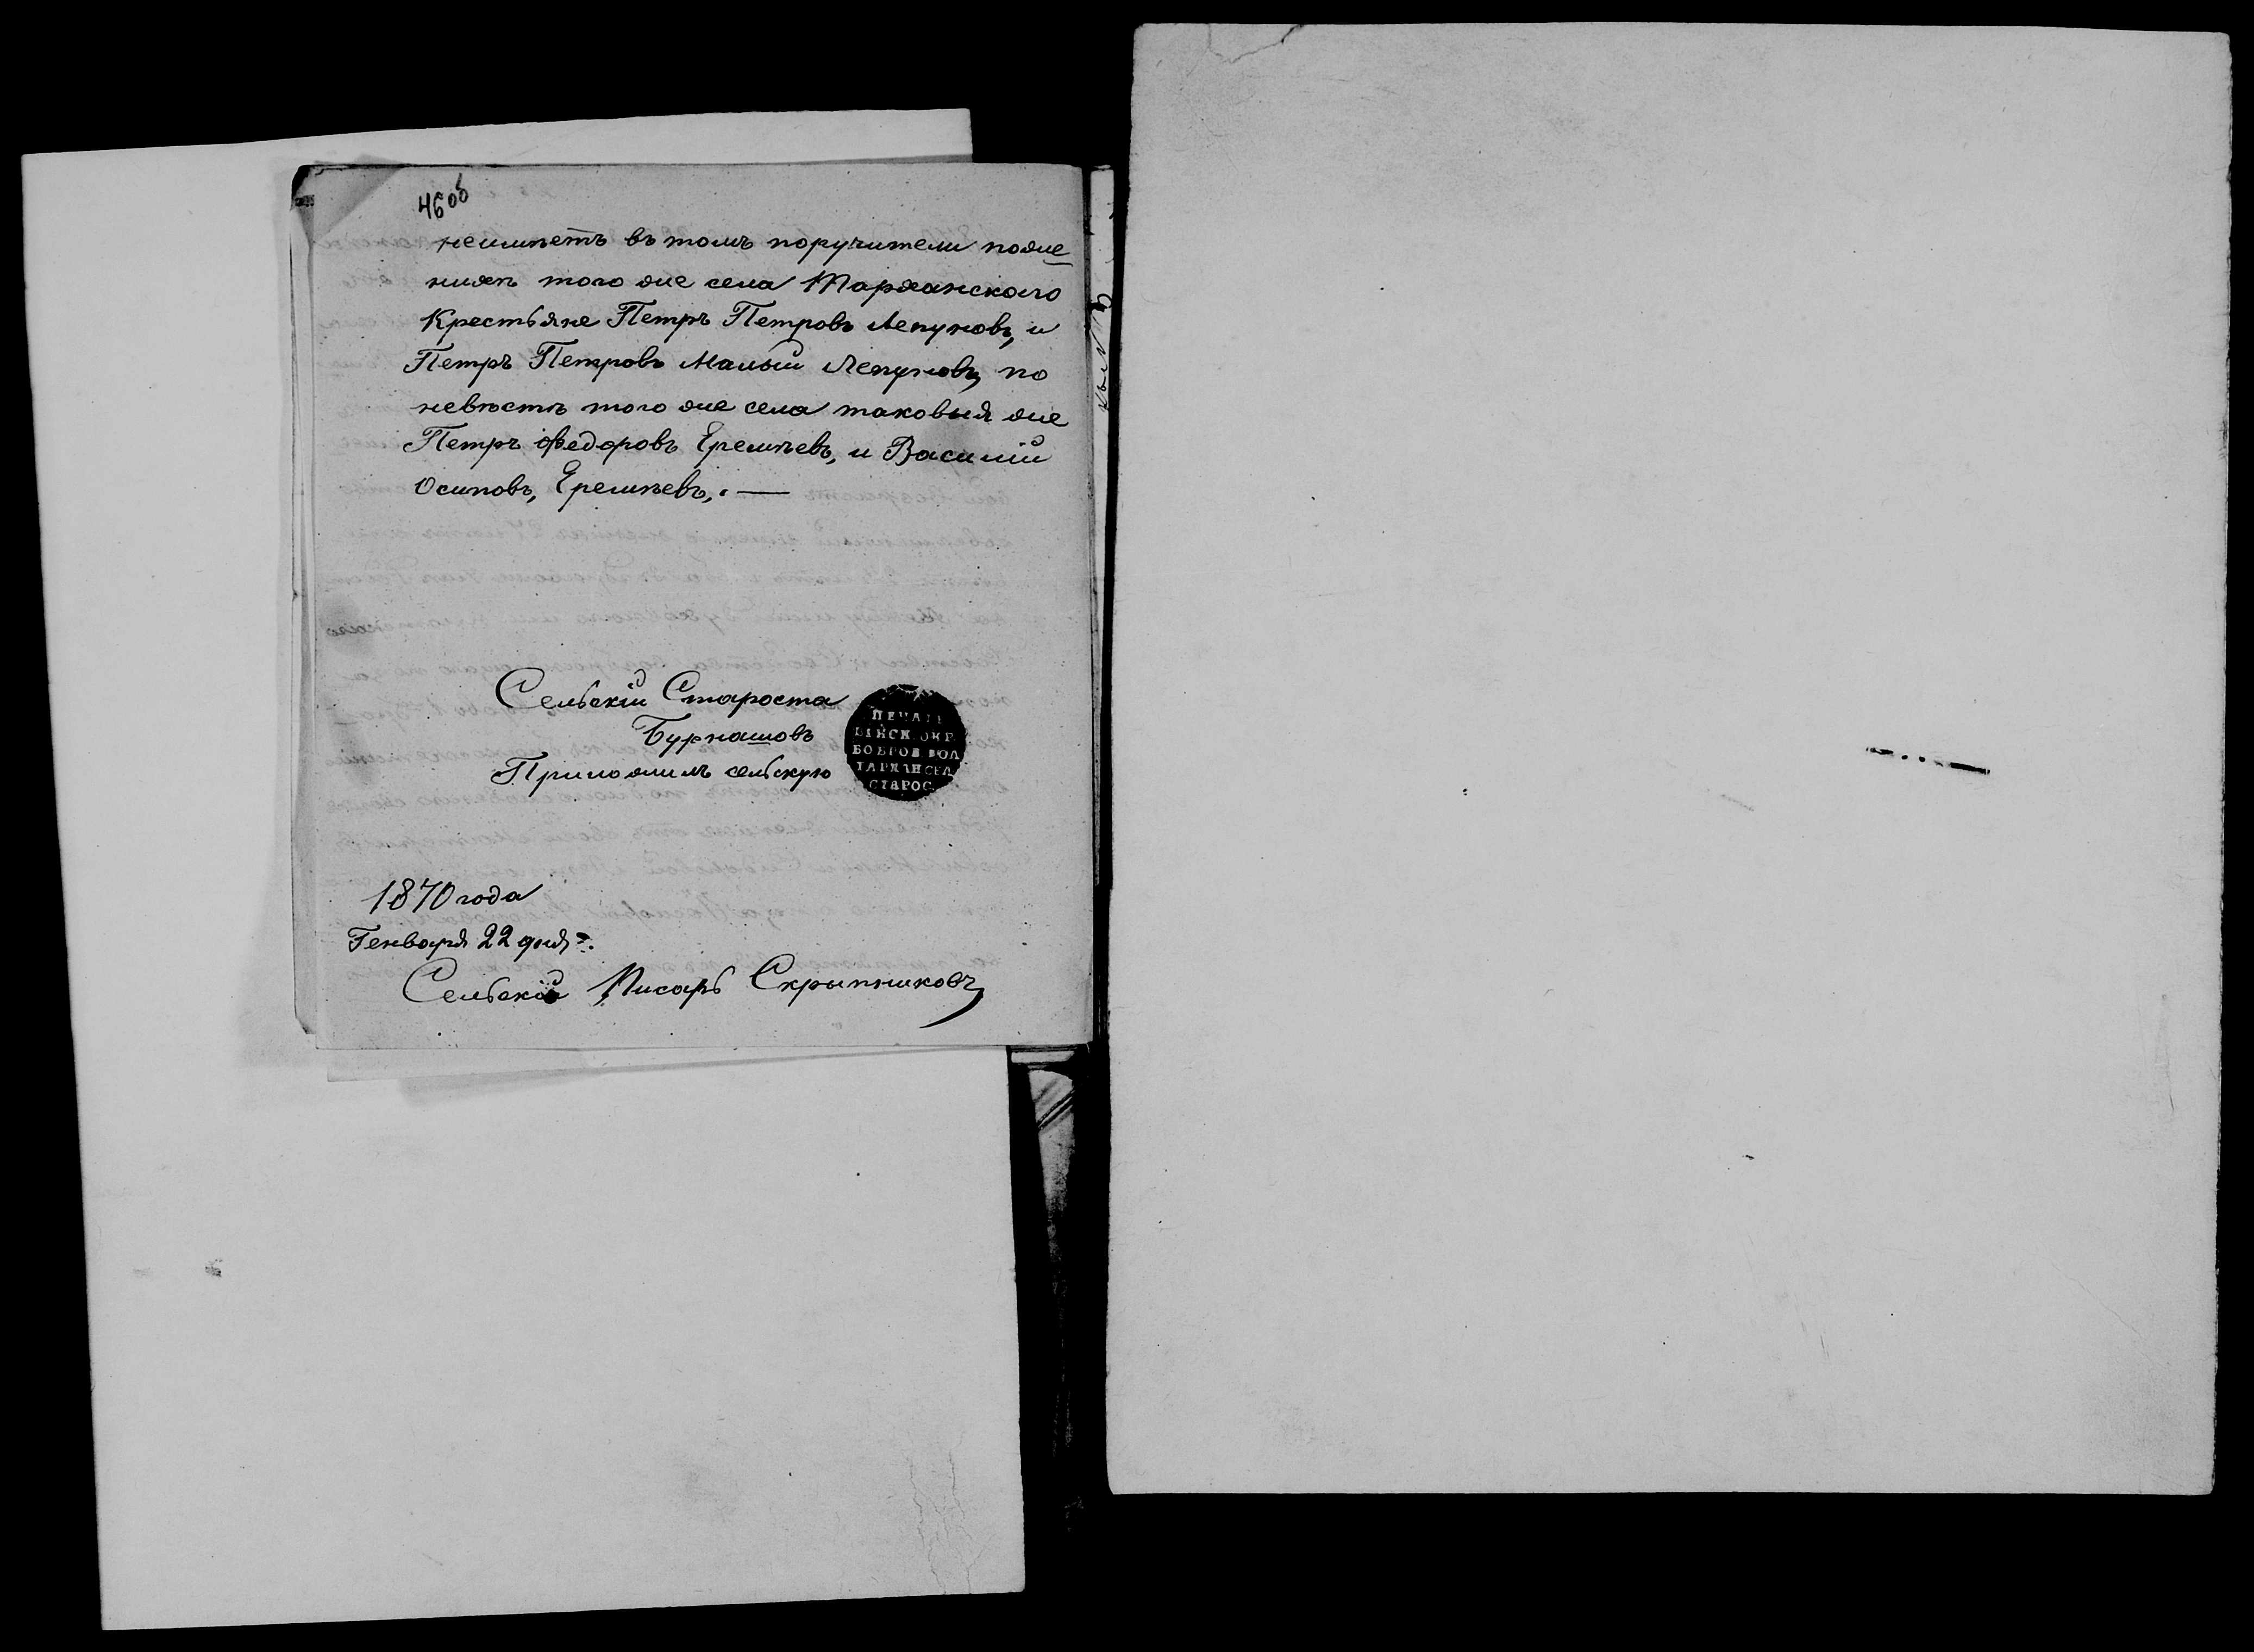 46об
неимѣетъ въ томъ поручители по же
нихѣ того же села Тарханского
Крестьяне Петръ Петровъ Лепуновъ, и
Петръ Петровъ Малый Лепуновъ, по
невѣстѣ того же села таковыя же
Петръ Федоровъ Еремѣевъ, и Василій
Осиповъ, Еремѣевъ, . —
Сельскій Староста
Бурнашовъ
Приложилъ сельскую
ПЕЧАТЬ
БІЙСК. ОКР.
БОБРОВ ВОЛ
ТАРХАН СЕЛ
СТАРОС.
1870 года
Генваря 22 дня.
Сельскій Писарь Скрыпниковъ